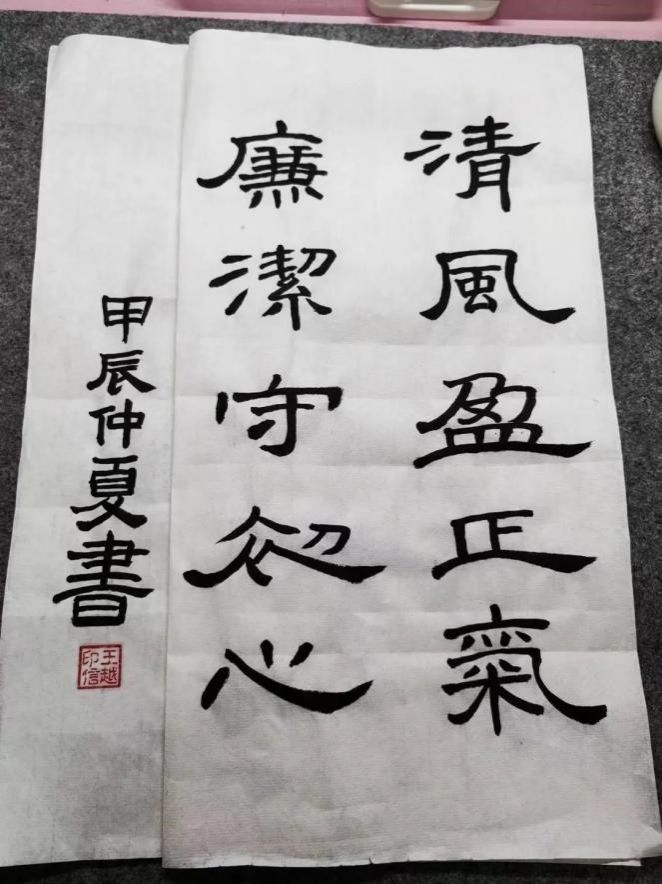 清風盈正氣
廉潔守初心
甲辰仲夏書
王越印信